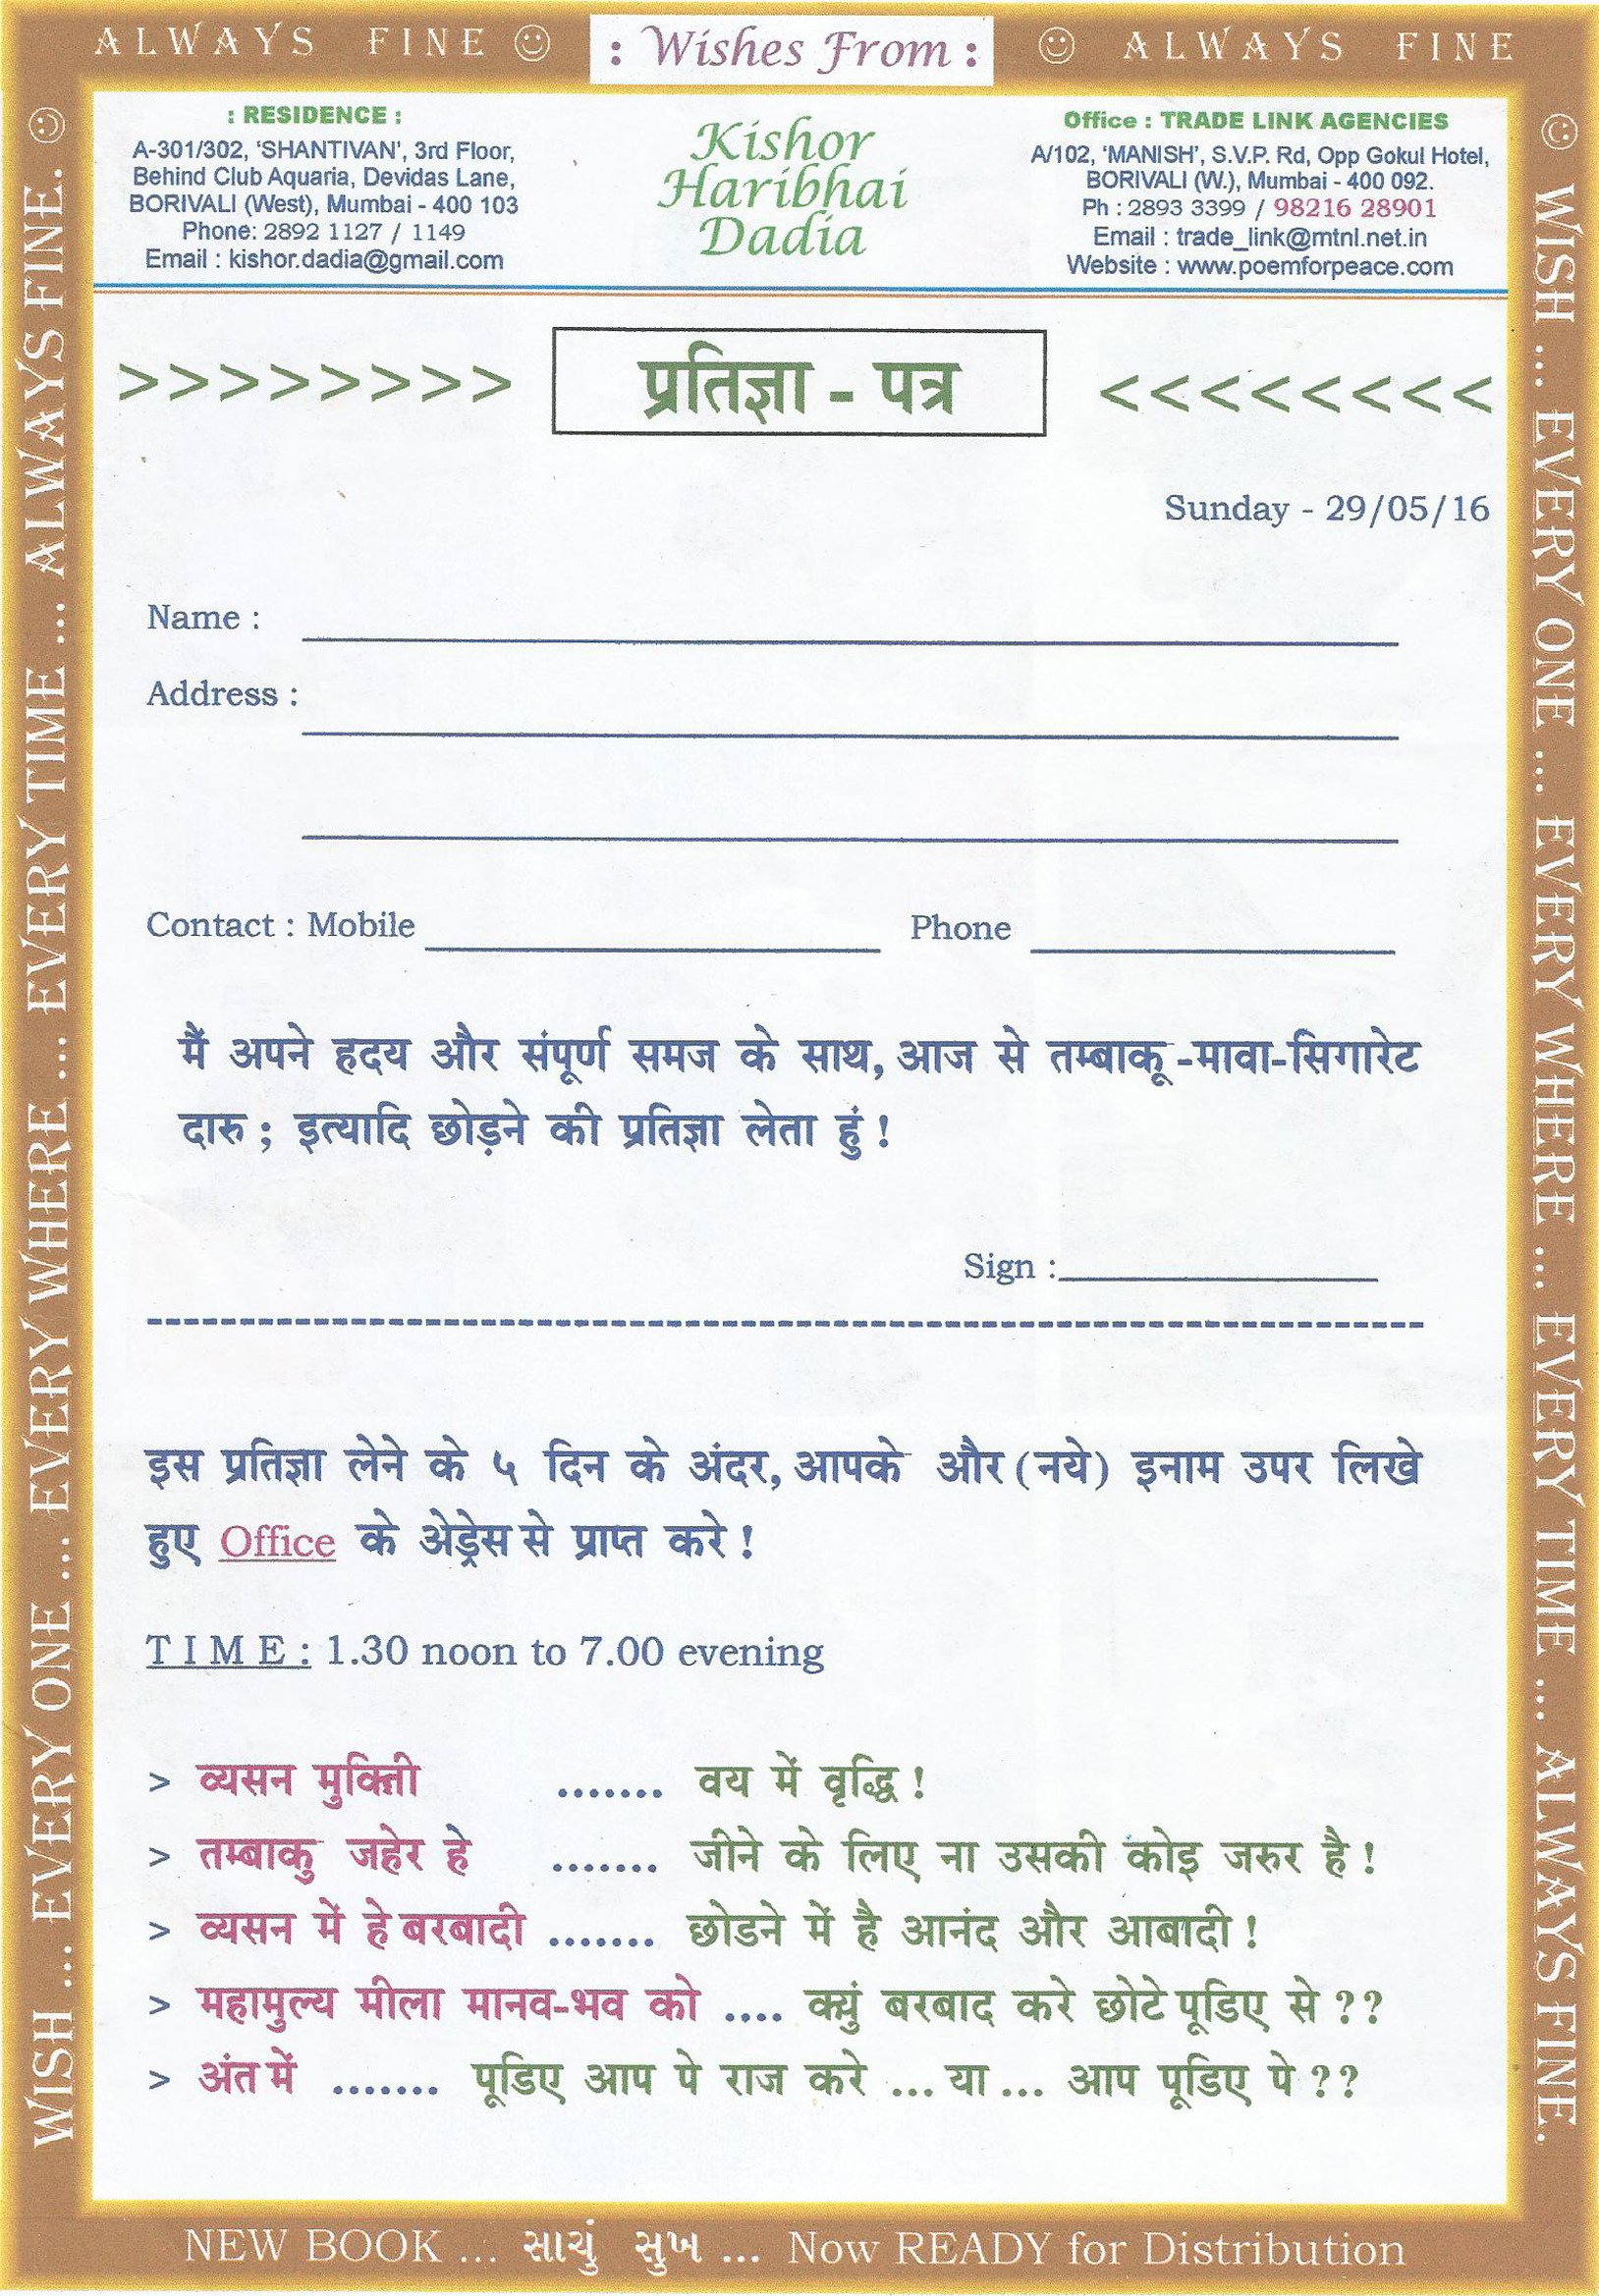 ALWAYS FINE ☺ : Wishes From : ☺ ALWAYS FINE
: RESIDENCE :
A-301/302, 'SHANTIVAN', 3rd Floor,
Behind Club Aquaria, Devidas Lane,
BORIVALI (West), Mumbai - 400 103
Phone: 2892 1127 / 1149
Email : kishor.dadia@gmail.com
Kishor
Haribhai
Dadia
Office : TRADE LINK AGENCIES
A/102, 'MANISH', S.V.P. Rd, Opp Gokul Hotel,
BORIVALI (W.), Mumbai - 400 092.
Ph : 2893 3399 / 98216 28901
Email : trade_link@mtnl.net.in
Website : www.poemforpeace.com
>>>>>>>> प्रतिज्ञा - पत्र <<<<<<<<
Sunday - 29/05/16
Name :
Address :
Contact : Mobile Phone
मैं अपने हदय और संपूर्ण समज के साथ, आज से तम्बाकू -मावा-सिगारेट
दारु ; इत्यादि छोड़ने की प्रतिज्ञा लेता हुं !
Sign :
इस प्रतिज्ञा लेने के ५ दिन के अंदर, आपके और (नये) इनाम उपर लिखे
हुए Office के अेड्रेस से प्राप्त करे !
T I M E : 1.30 noon to 7.00 evening
> व्यसन मुक्तिी ....... वय में वृद्धि !
> तम्बाकु जहेर हे ....... जीने के लिए ना उसकी कोइ जरुर है !
> व्यसन में हे बरबादी ....... छोडने में है आनंद और आबादी !
> महामुल्य मीला मानव-भव को .... क्युं बरबाद करे छोटे पूडिए से ??
> अंत में ....... पूडिए आप पे राज करे ... या ... आप पूडिए पे ??
WISH ... EVERY ONE ... EVERY WHERE ... EVERY TIME ... ALWAYS FINE. ☺
☺ WISH ... EVERY ONE ... EVERY WHERE ... EVERY TIME ... ALWAYS FINE.
NEW BOOK ... સાચું સુખ ... Now READY for Distribution